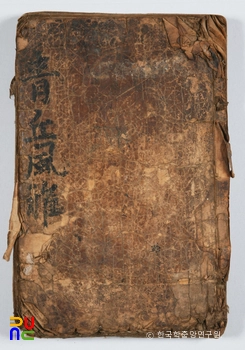 靑丘風雅
© 한국학중앙연구원